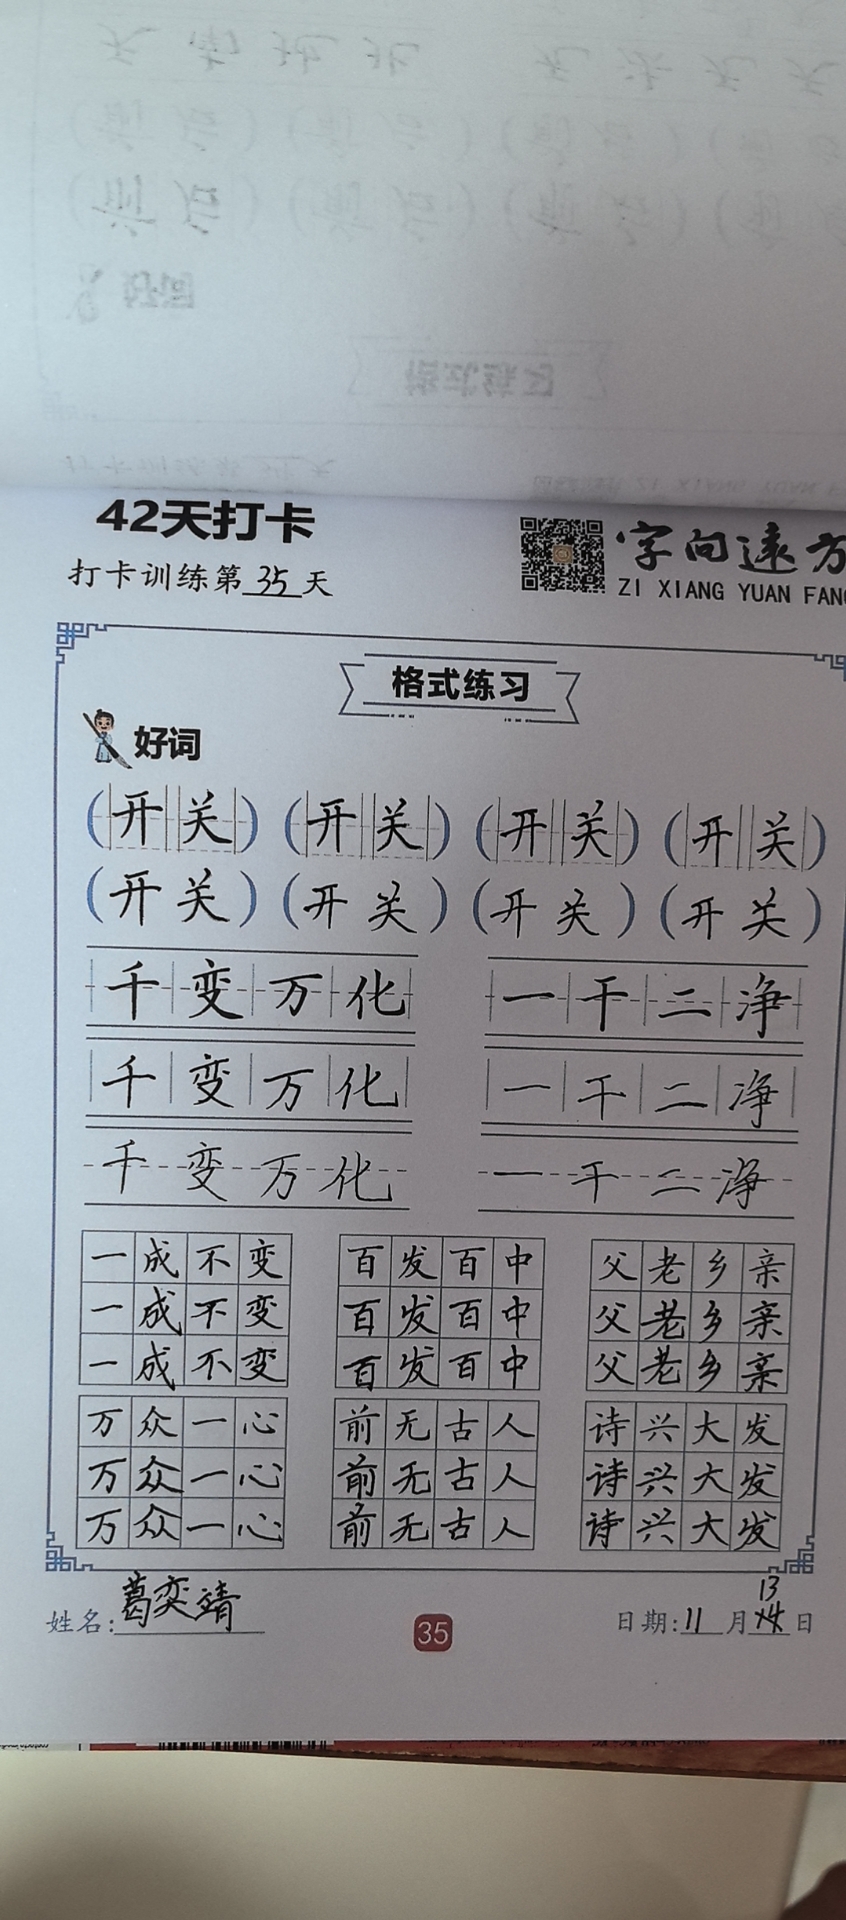 42天打卡
字向远方
打卡训练第35天
ZI XIANG YUAN FANG
格式练习
好词
(开关)(开关)(开关)(开关)
(开关)(开关)(开关)(开关)
千变万化 一干二净
千变万化 一干二净
千变万化 一干二净
一成不变 百发百中 父老乡亲
一成不变 百发百中 父老乡亲
一成不变 百发百中 父老乡亲
万众一心 前无古人 诗兴大发
万众一心 前无古人 诗兴大发
万众一心 前无古人 诗兴大发
姓名:葛奕靖 35 日期:11月13日